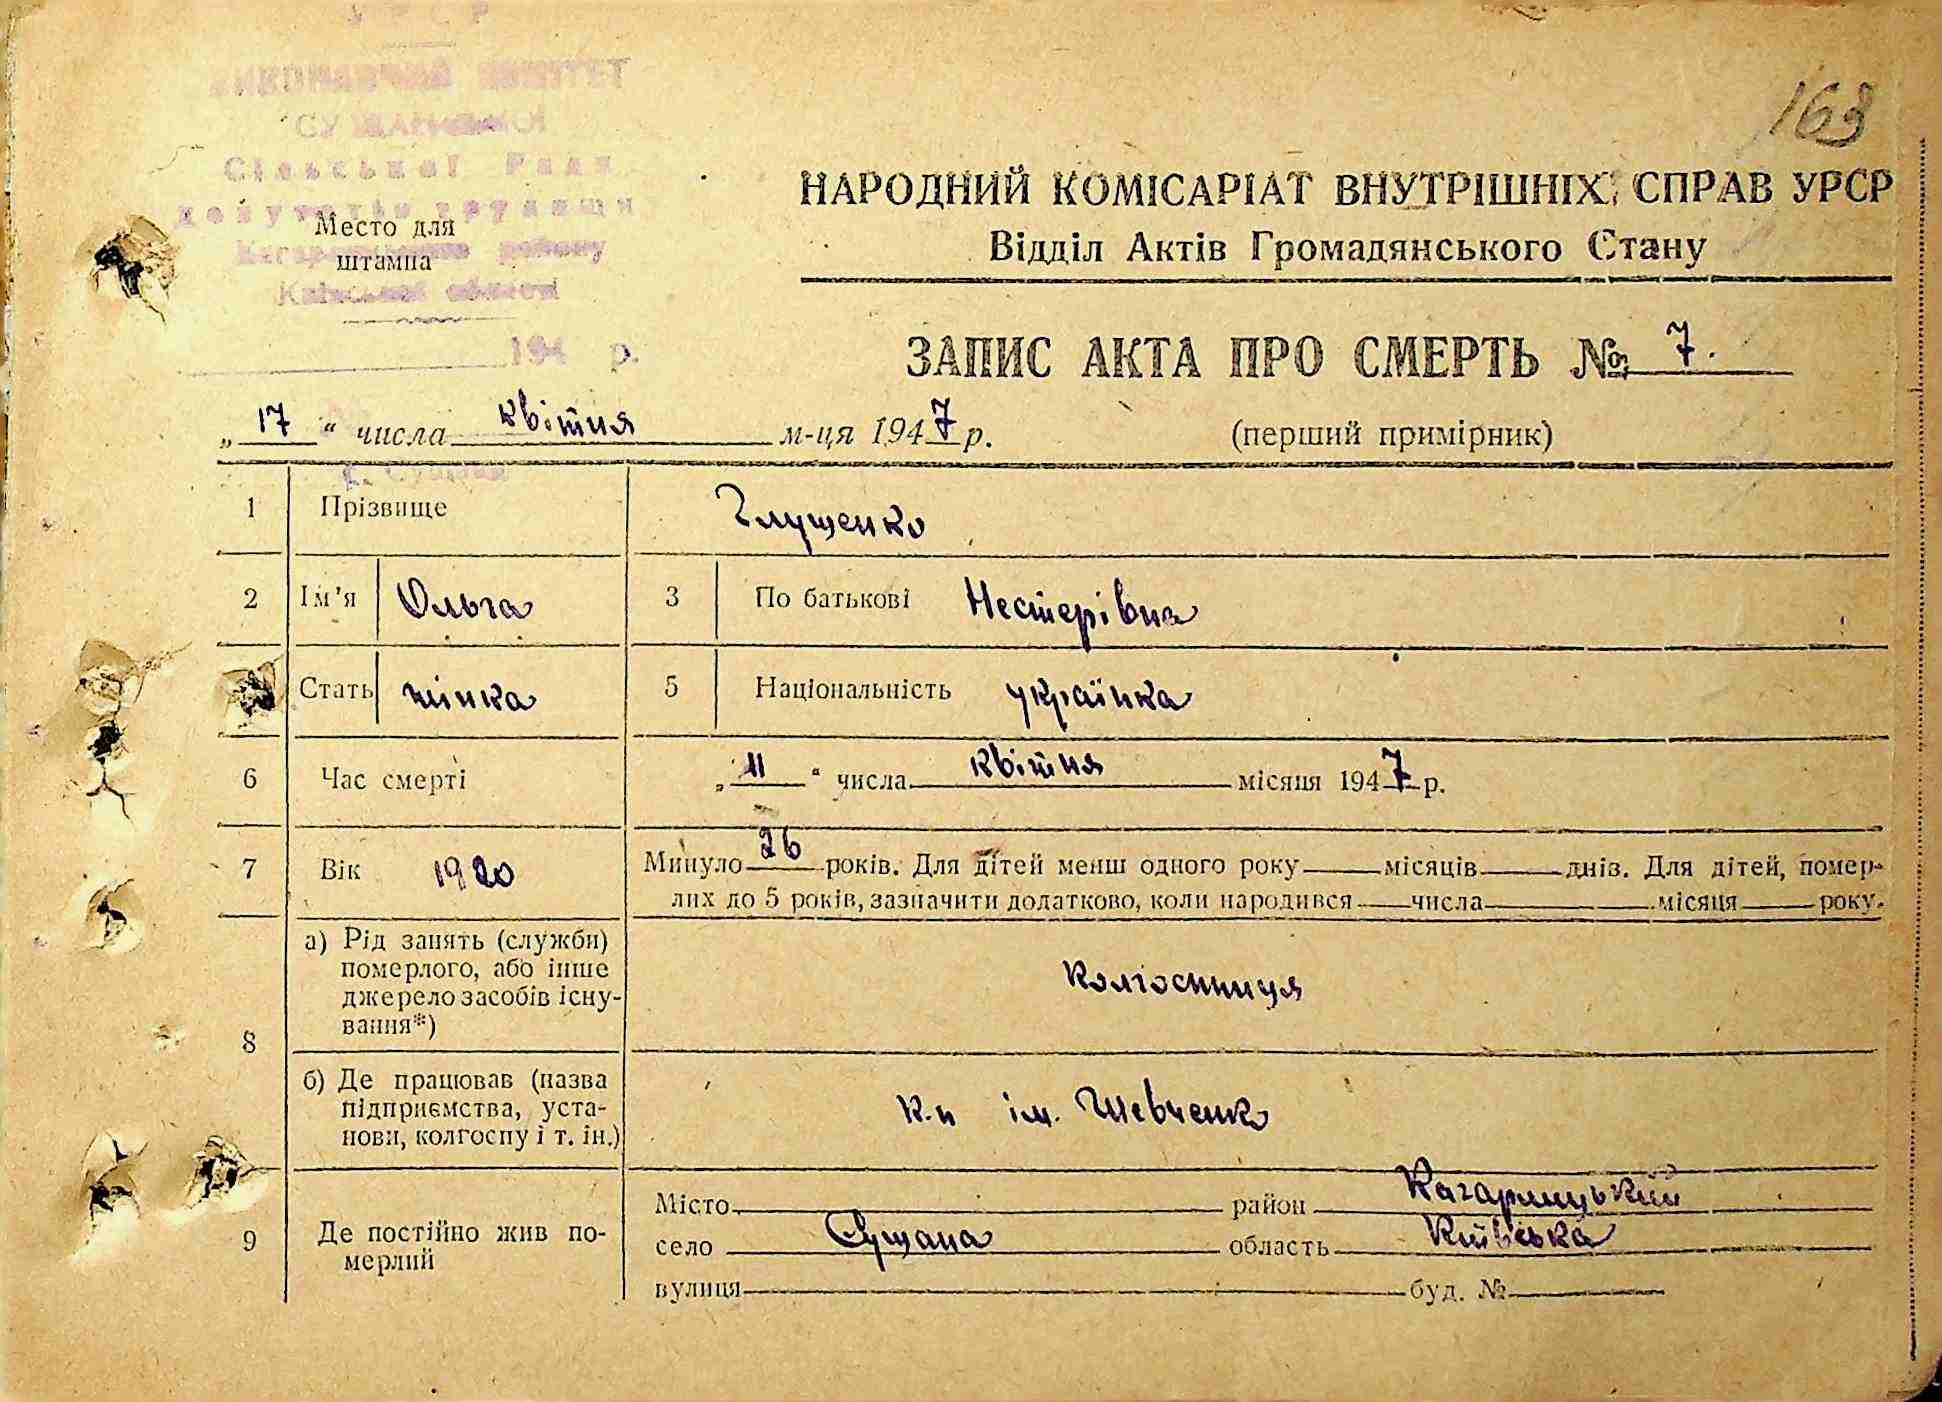 УРСР
ВИКОНАВЧИЙ КОМІТЕТ
СУЩАНСЬКОЇ
Сільської Ради
депутатів трудящих
Кагарлицького району
Київської області
194 р.
Место для
штампа
163
НАРОДНИЙ КОМІСАРІАТ ВНУТРІШНІХ СПРАВ УРСР
Відділ Актів Громадянського Стану
ЗАПИС АКТА ПРО СМЕРТЬ № 7.
„17“ числа квітня м-ця 1947 р.
(перший примірник)
1 Прізвище Глущенко
2 Ім'я Ольга 3 По батькові Нестерівна
Стать жінка 5 Національність українка
6 Час смерті „11“ числа квітня місяця 1947 р.
7 Вік 1920 Минуло 26 років. Для дітей менш одного року місяців днів. Для дітей, помер-
лих до 5 років, зазначити додатково, коли народився числа місяця року.
8 а) Рід занять (служби)
померлого, або інше
джерело засобів існу-
вання*)
колгоспниця
б) Де працював (назва
підприємства, уста-
нови, колгоспу і т. ін.)
к-п ім. Шевченко
9 Де постійно жив по-
мерлий
Місто район Кагарлицький
село Сущана область Київська
вулиця буд. №